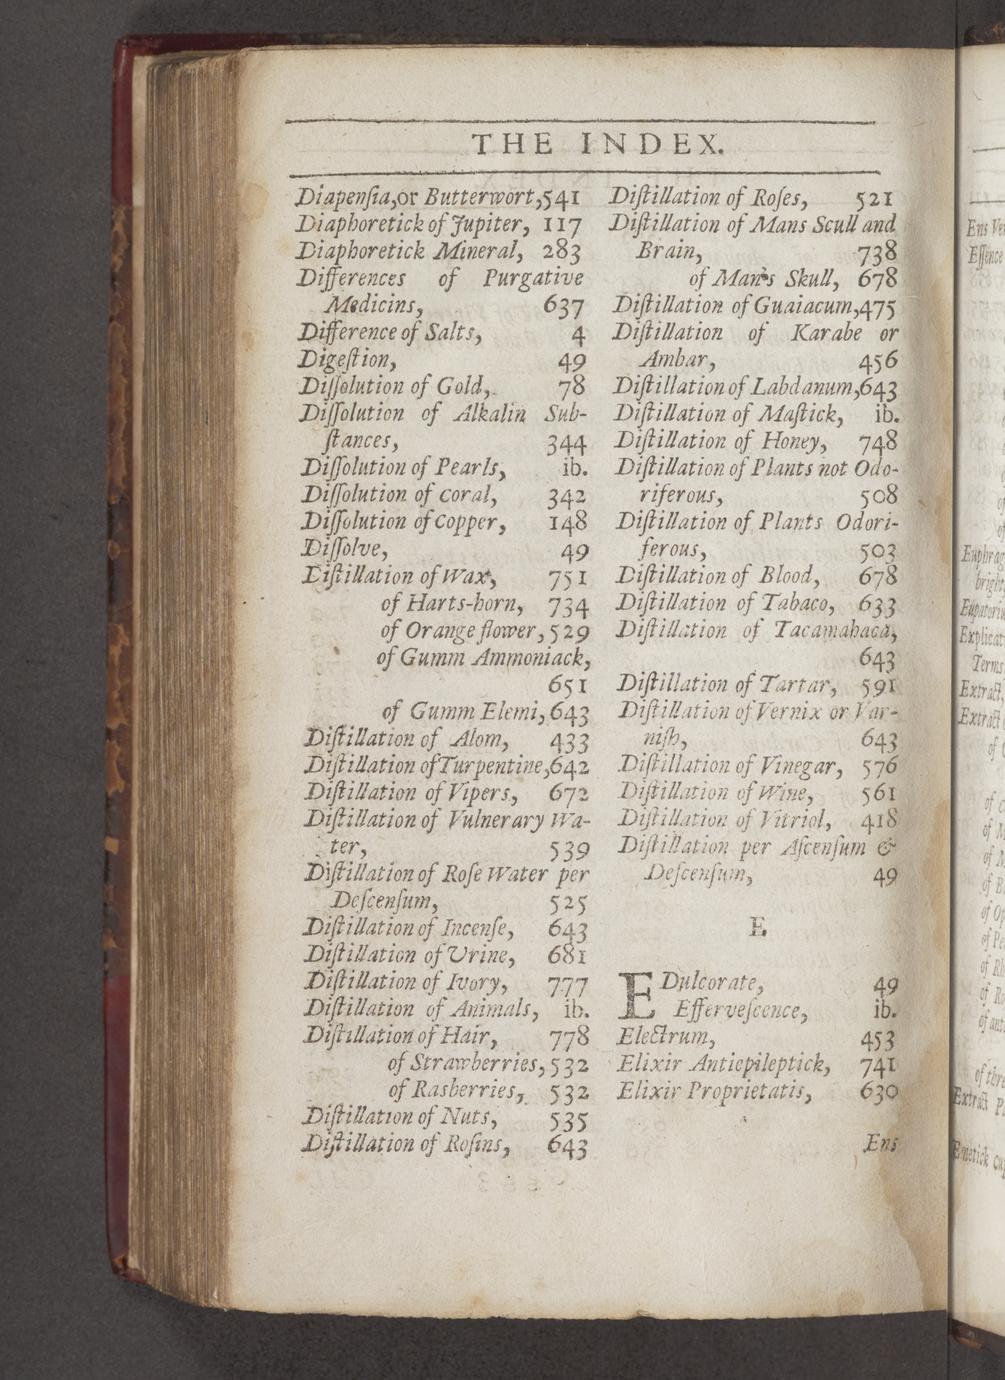 THE INDEX.
Diapenſia, or Butterwort, 541
Diaphoretick of Jupiter, 117
Diaphoretick Mineral, 283
Differences of Purgative
Medicins, 637
Difference of Salts, 4
Digeſtion, 49
Diſſolution of Gold, 78
Diſſolution of Alkalin Sub-
ſtances, 344
Diſſolution of Pearls, ib.
Diſſolution of Coral, 342
Diſſolution of Copper, 148
Diſſolve, 49
Diſtillation of Wax, 751
of Harts-horn, 734
of Orange flower, 529
of Gumm Ammoniack,
651
of Gumm Elemi, 643
Diſtillation of Alom, 433
Diſtillation of Turpentine, 642
Diſtillation of Vipers, 672
Diſtillation of Vulnerary Wa-
ter, 539
Diſtillation of Roſe Water per
Deſcenſum, 525
Diſtillation of Incenſe, 643
Diſtillation of Urine, 681
Diſtillation of Ivory, 777
Diſtillation of Animals, ib.
Diſtillation of Hair, 778
of Strawberries, 532
of Rasberries, 532
Diſtillation of Nuts, 535
Diſtillation of Roſins, 643
Diſtillation of Roſes, 521
Diſtillation of Mans Scull and
Brain, 738
of Man's Skull, 678
Diſtillation of Guaiacum, 475
Diſtillation of Karabe or
Ambar, 456
Diſtillation of Labdanum, 643
Diſtillation of Maſtick, ib.
Diſtillation of Honey, 748
Diſtillation of Plants not Odo-
riferous, 508
Diſtillation of Plants Odori-
ferous, 503
Diſtillation of Blood, 678
Diſtillation of Tabaco, 633
Diſtillation of Tacamahaca,
643
Diſtillation of Tartar, 591
Diſtillation of Vernix or Var-
niſh, 643
Diſtillation of Vinegar, 576
Diſtillation of Wine, 561
Diſtillation of Vitriol, 418
Diſtillation per Aſcenſum &
Deſcenſum, 49
E
EDulcorate, 49
Efferveſcence, ib.
Electrum, 453
Elixir Antiepileptick, 741
Elixir Proprietatis, 630
Ens